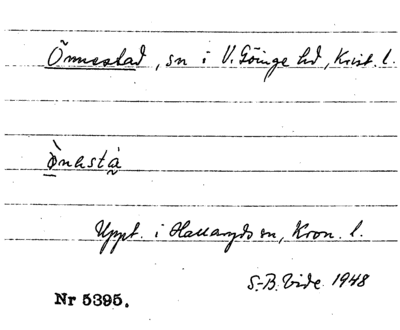 Önnestad, sn i V. Göinge hd, Krist. l.
ò̱nastḁ̀
Uppt. i Hallaryds sn, Kron. l.
S.-B. Vide 1948
Nr 5395.